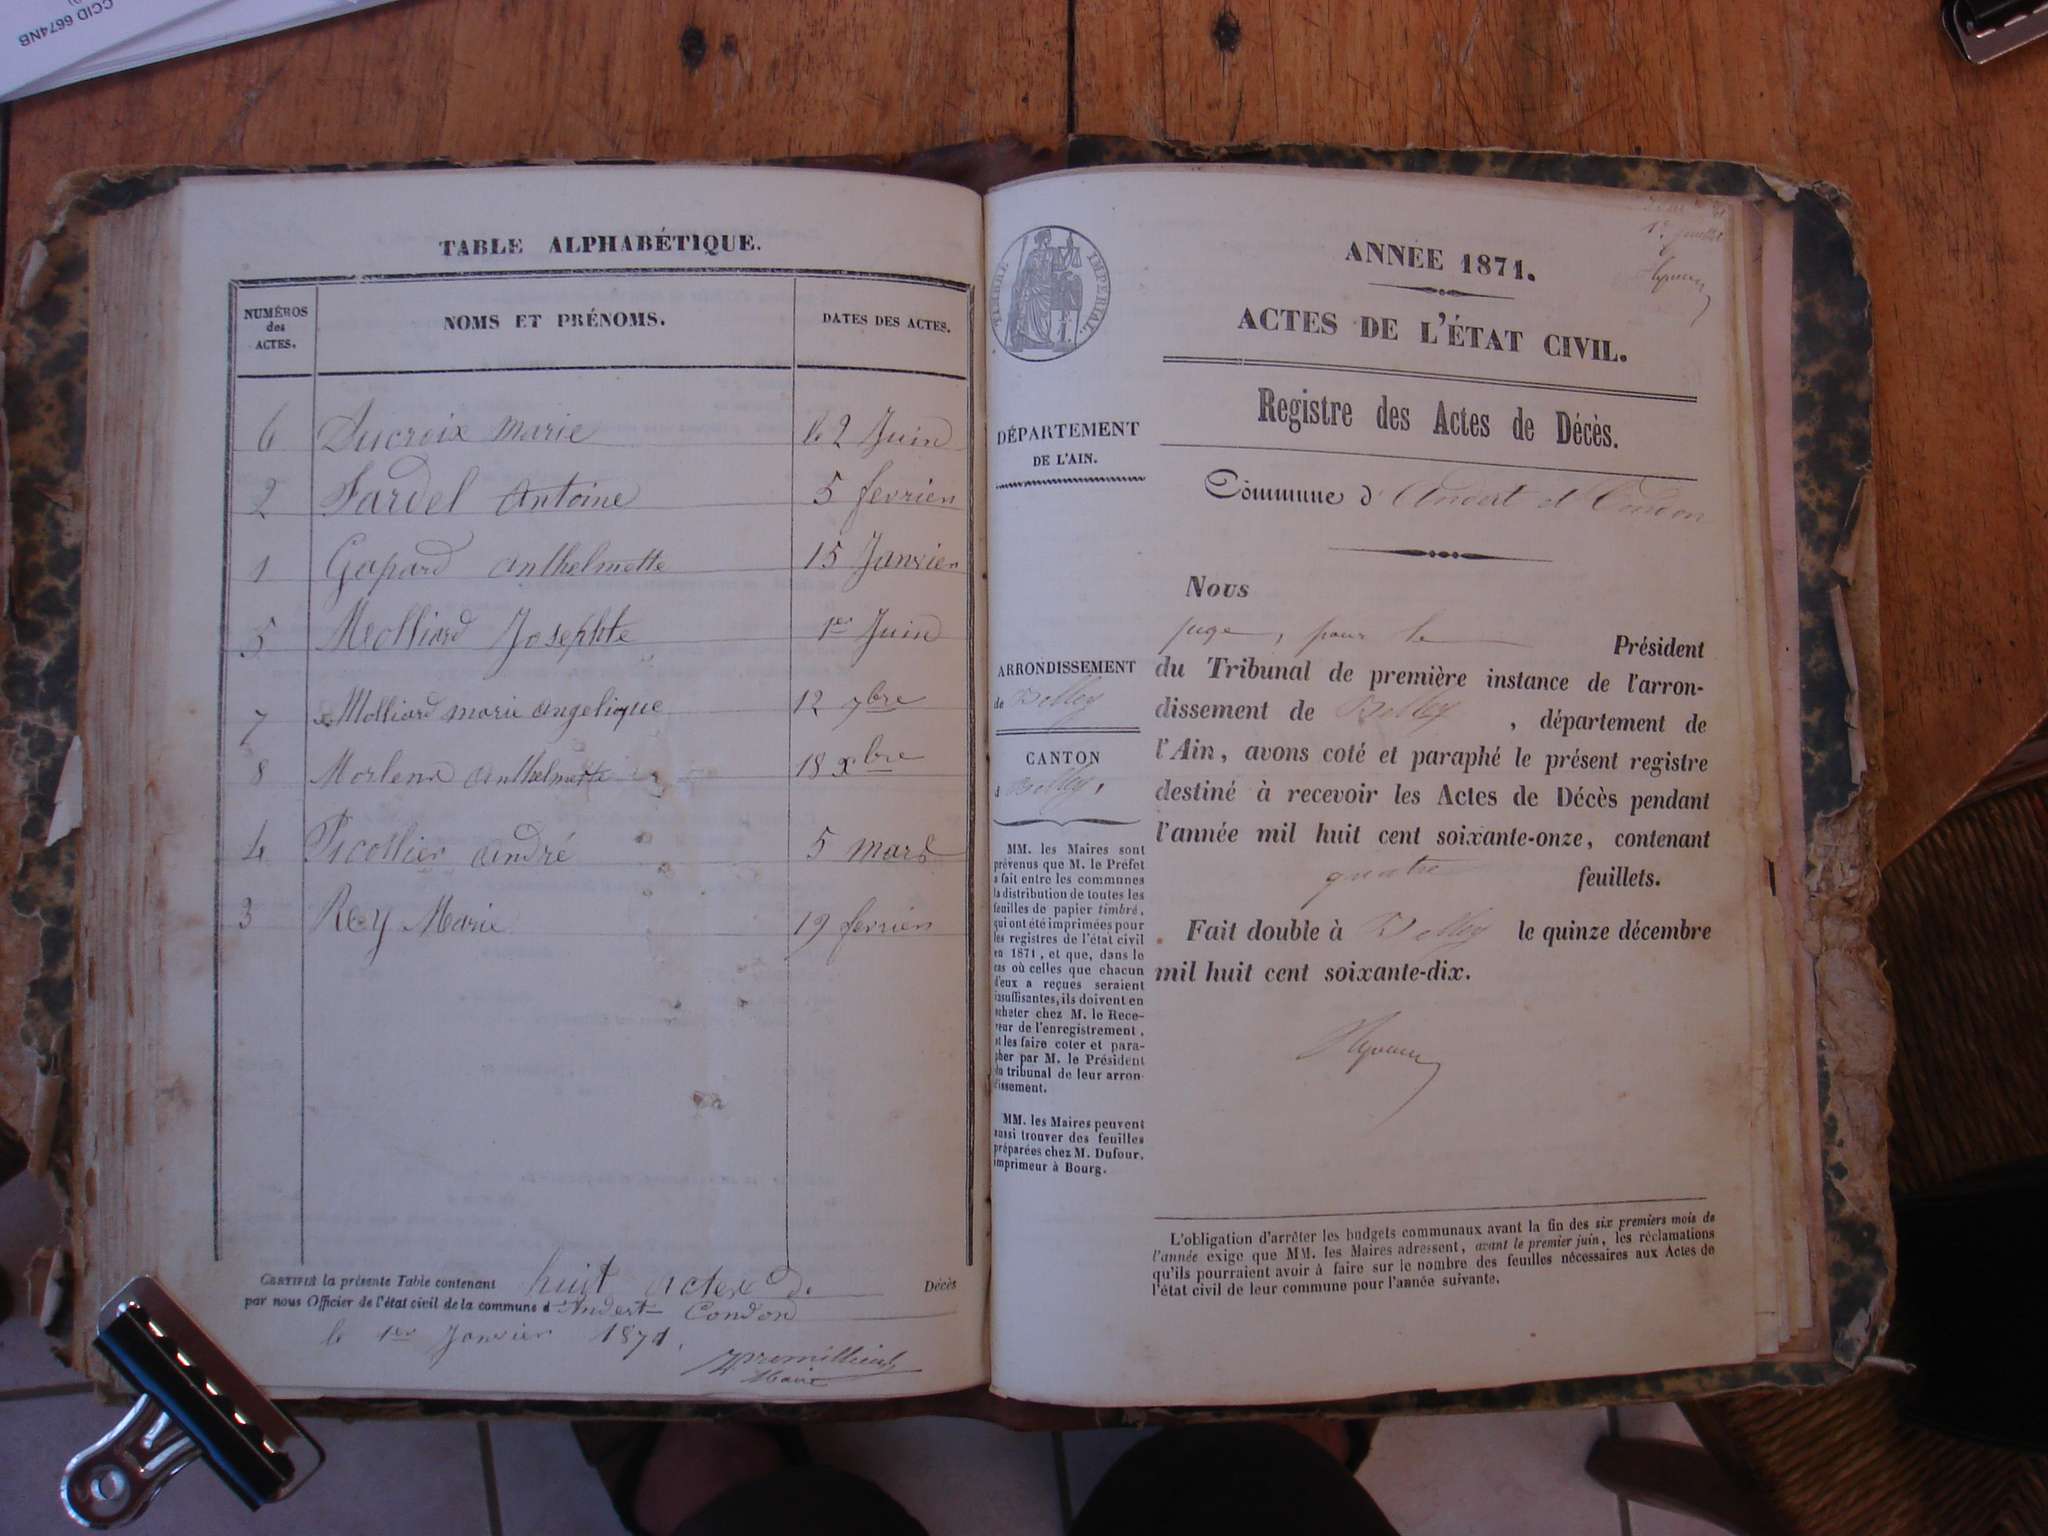 CCID 6674NB
TABLE ALPHABÉTIQUE.
NUMÉROS des ACTES.
NOMS ET PRÉNOMS.
DATES DES ACTES.
6 Ducroix Marie le 2 Juin
2 Fardel Antoine 5 fevrier
1 Gopard Anthelmette 15 Janvier
5 Molliard Josephte 1er Juin
7 Molliard marie angelique 12 7bre
8 Anthelmette 18 xbre
4 Picollier André 5 mars
3 Rey Marie 19 fevrier
CERTIFIÉ la présente Table contenant huit actes de Décès
par nous Officier de l'état civil de la commune d'Andert-Condon
le 1er Janvier 1871.
Maire
TIMBRE IMPERIAL.
1er Juillet
ANNÉE 1871.
ACTES DE L'ÉTAT CIVIL.
Registre des Actes de Décès.
Commune d'Andert et Condon
DÉPARTEMENT
DE L'AIN.
ARRONDISSEMENT
de Belley
CANTON
d Belley,
MM. les Maires sont
prévenus que M. le Préfet
a fait entre les communes
la distribution de toutes les
feuilles de papier timbré,
qui ont été imprimées pour
les registres de l'état civil
en 1871, et que, dans le
cas où celles que chacun
d'eux a reçues seraient
insuffisantes, ils doivent en
acheter chez M. le Rece-
veur de l'enregistrement,
et les faire coter et para-
pher par M. le Président
du tribunal de leur arron-
dissement.
MM. les Maires peuvent
aussi trouver des feuilles
préparées chez M. Dufour,
imprimeur à Bourg.
Nous
juge, pour le Président
du Tribunal de première instance de l'arron-
dissement de Belley, département de
l'Ain, avons coté et paraphé le présent registre
destiné à recevoir les Actes de Décès pendant
l'année mil huit cent soixante-onze, contenant
quatre feuillets.
Fait double à Belley le quinze décembre
mil huit cent soixante-dix.
L'obligation d'arrêter les budgets communaux avant la fin des six premiers mois de
l'année exige que MM. les Maires adressent, avant le premier juin, les réclamations
qu'ils pourraient avoir à faire sur le nombre des feuilles nécessaires aux Actes de
l'état civil de leur commune pour l'année suivante.